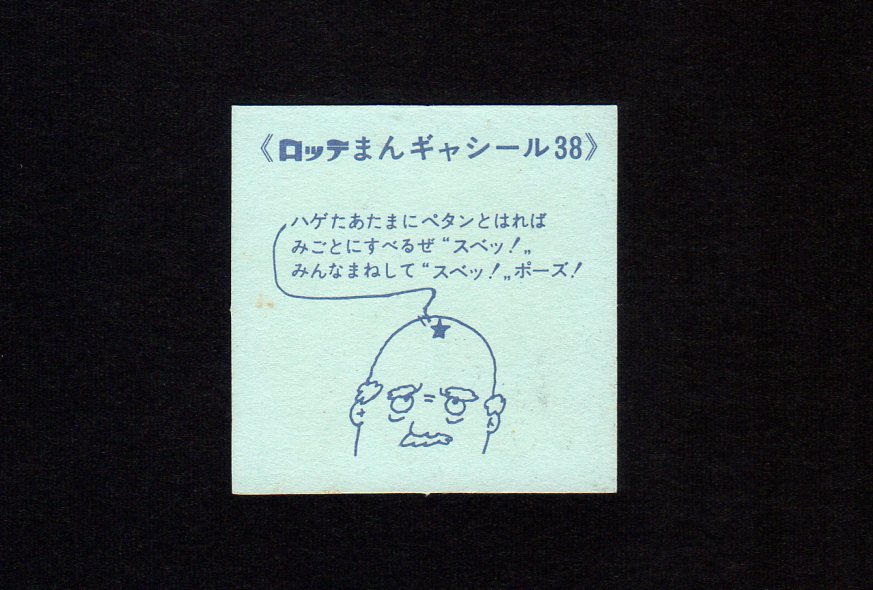 《ロッテまんギャシール38》
ハゲたあたまにペタンとはれば
みごとにすべるぜ“スベッ!„
みんなまねして“スベッ!„ポーズ!